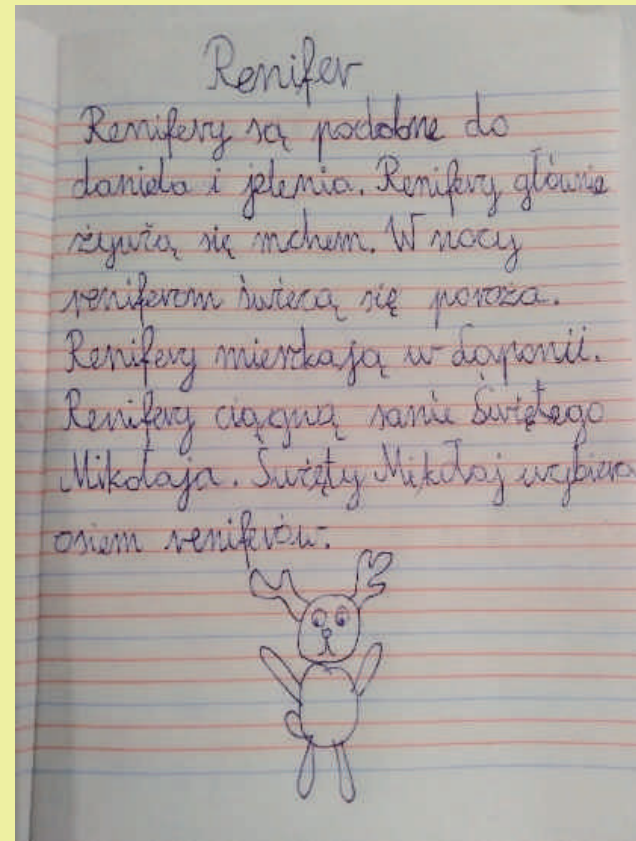 Renifer
Renifery są podobne do
daniela i jelenia. Renifery głównie
żywią się mchem. W nocy
reniferom świecą się poroża.
Renifery mieszkają w Laponii.
Renifery ciągną sanie Świętego
Mikołaja. Święty Mikołaj wybiera
osiem reniferów.